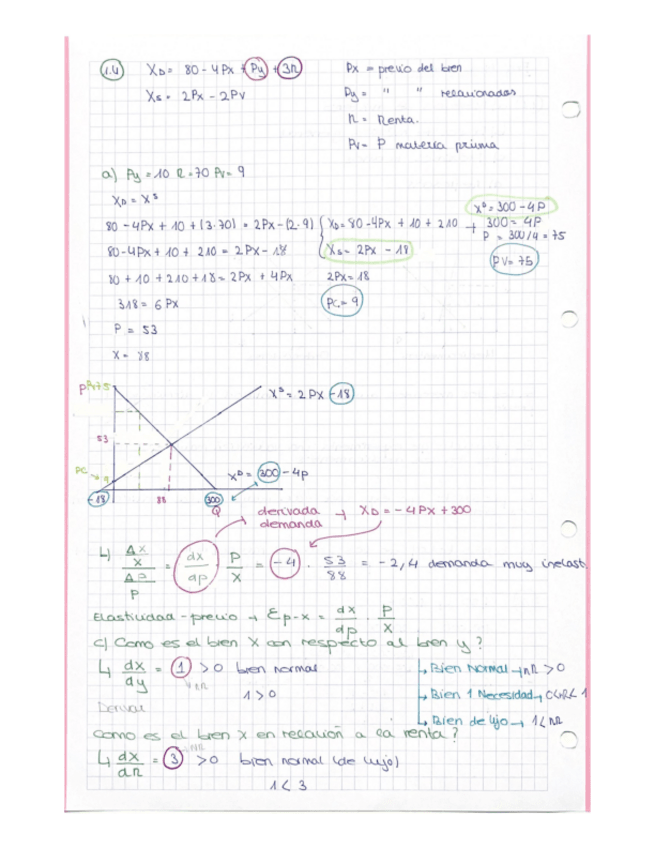 1.4 XD = 80 - 4Px + Py + 3R Px = precio del bien
XS = 2Px - 2PV Py = " " relacionados
R = Renta.
PV = P materia prima
a) Py = 10 R = 70 PV = 9
XD = XS
80 - 4Px + 10 + (3·70) = 2Px - (2·9) { XD = 80 - 4Px + 10 + 210 → XD = 300 - 4P
300 = 4P
P = 300/4 = 75
80 - 4Px + 10 + 210 = 2Px - 18 XS = 2Px - 18 PV = 75
80 + 10 + 210 + 18 = 2Px + 4Px 2Px = 18
318 = 6Px PC = 9
P = 53
X = 88
75 XS = 2Px - 18
53
PC 9 XD = 300 - 4P
-18 88 300
Q derivada → XD = -4Px + 300
demanda
ΔX/X / ΔP/P = dx/dp · P/X = -4 · 53/88 = -2,4 demanda muy inelast
Elasticidad-precio → Ep-x = dx/dp · P/X
c) Como es el bien X con respecto al bien y?
↳ dx/dy = 1 > 0 bien normal ↳ Bien Normal → nR > 0
1 > 0 ↳ Bien 1 Necesidad → 0<nR<1
Derivar ↳ Bien de lujo → 1<nR
Como es el bien X en relación a la renta?
↳ dx/dR = 3 > 0 bien normal (de lujo)
1 < 3